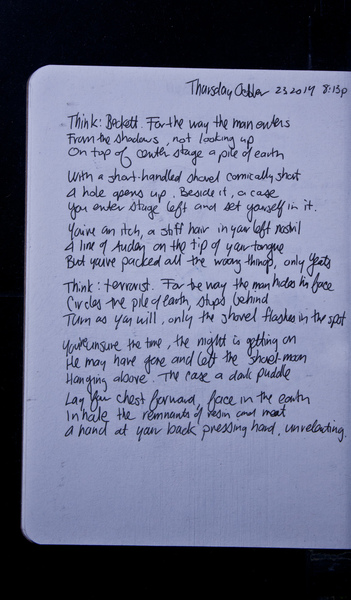 Thursday October 23 2014 8:13p
Think: Beckett. For the way the man enters
From the shadows, not looking up
On top of center stage a pile of earth
With a short-handled shovel comically short
A hole opens up. Beside it, a case
You enter stage left and set yourself in it.
You're an itch, a stiff hair in your left nostril
A line of Auden on the tip of your tongue
But you've packed all the wrong things, only Yeats
Think: terrorist. For the way the man hides his face
Circles the pile of earth, stops behind
Turn as you will, only the shovel flashes in the spot
You're unsure the time, the night is getting on
He may have gone and left the shovel-man
Hanging above. The case a dark puddle
Lay your chest forward, face in the earth
Inhale the remnants of resin and meat
A hand at your back pressing hard, unrelenting.